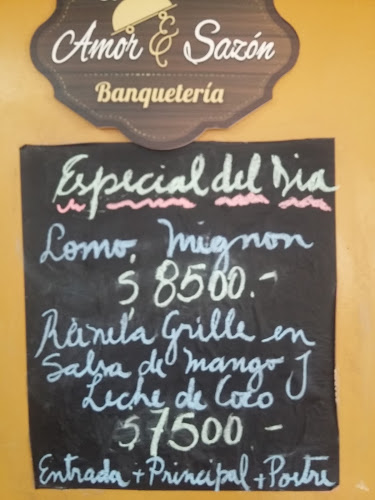 Amor & Sazón
Banquetería
Especial del Dia
Lomo Mignon
$ 8500.-
Reineta Grille en
Salsa de mango y
Leche de Coco
$ 7500-
Entrada + Principal + Postre